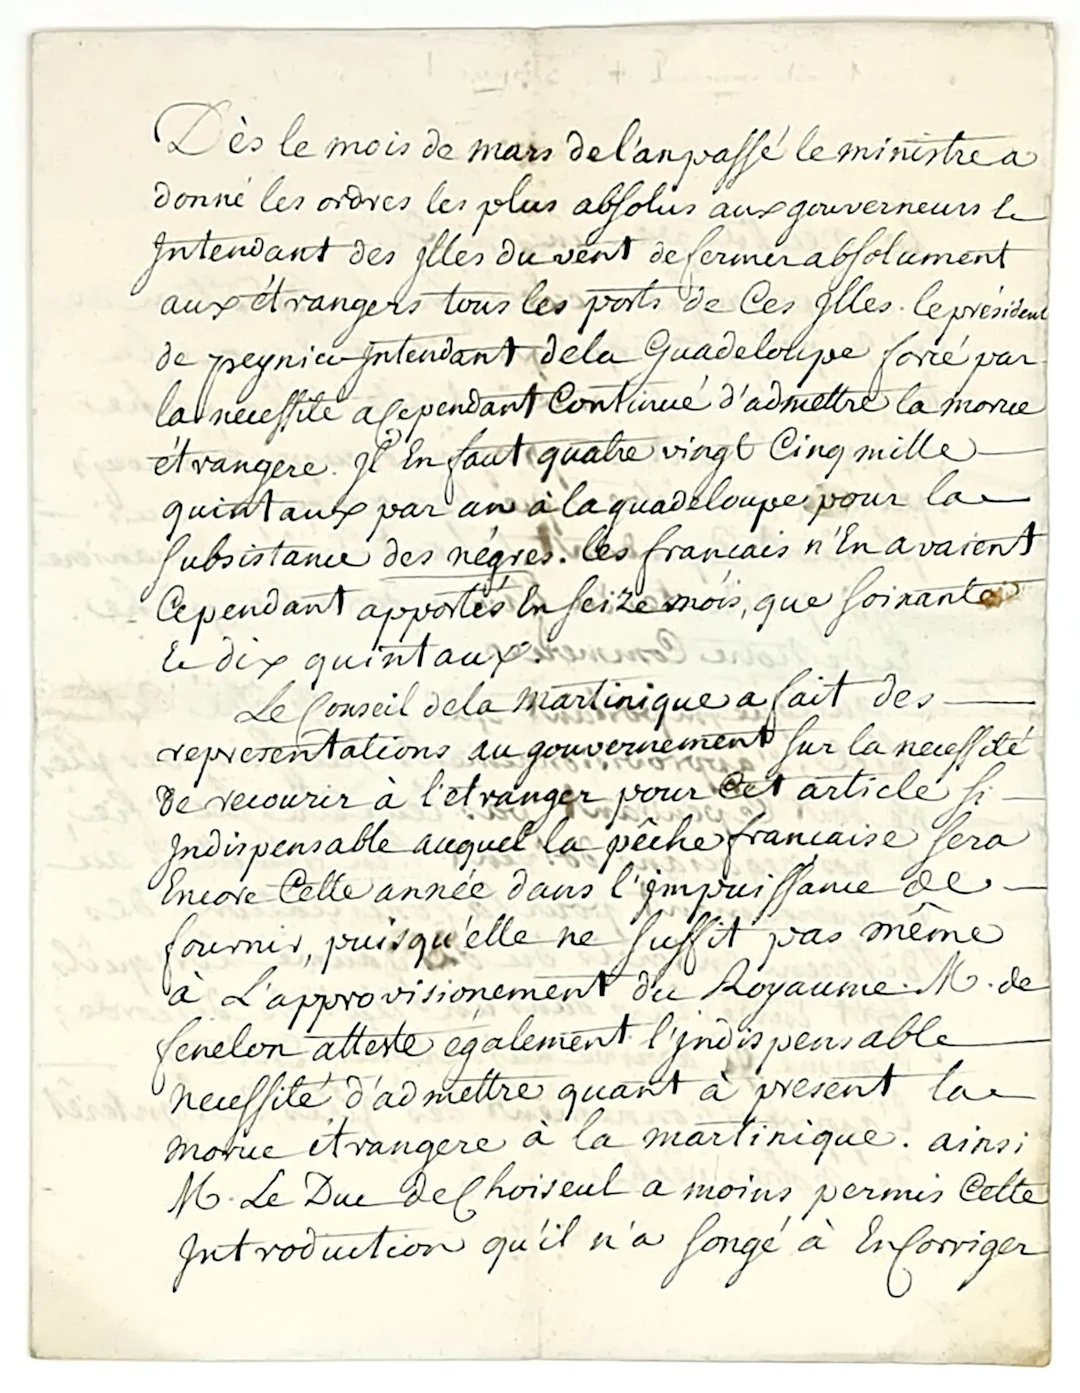 Dès le mois de mars de l'an passé le ministre a
donné les ordres les plus absolus aux gouverneurs &
Intendant des Illes du vent de fermer absolument
aux étrangers tous les ports de Ces Illes. le président
de peynier Intendant de la Guadeloupe forcé par
la necessité a Cependant Continué d'admettre la morue
étrangere. Il En faut quatre vingt Cinq mille
quintaux par an à la guadeloupe pour la
subsistance des négres. les francais n'En avaient
Cependant apportés En seize mois, que soixante
& dix quintaux.
Le Conseil de la Martinique a fait des
representations au gouvernement sur la necessité
de recourir à l'etranger pour Cet article si
Indispensable auquel la pêche francaise sera
Encore Cette année dans l'impuissance de
fournir, puisqu'elle ne suffit pas même
à L'approvisionement du Royaume. M. de
fenelon atteste également l'indispensable
necessité d'admettre quant à present la
morue étrangere à la martinique. ainsi
M. Le Duc de Choiseul a moins permis Cette
Introduction qu'il n'a songé à En Corriger